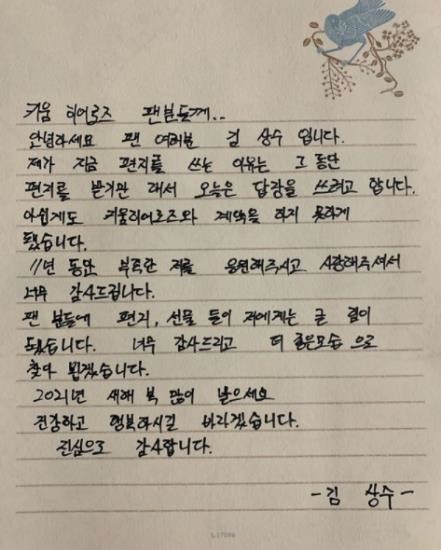 키움 히어로즈 팬분들께..
안녕하세요 팬 여러분 김 상수 입니다.
제가 지금 편지를 쓰는 이유는 그 동안
편지를 받기만 해서 오늘은 답장을 쓰려고 합니다.
아쉽게도 키움히어로즈와 계약을 하지 못하게
됐습니다.
11년 동안 부족한 저를 응원해주시고 사랑해주셔서
너무 감사드립니다.
팬 분들에 편지, 선물 들이 저에게는 큰 힘이
되었습니다. 너무 감사드리고 더 좋은모습 으로
찾아 뵙겠습니다.
2021년 새해 복 많이 받으세요
건강하고 행복하시길 바라겠습니다.
진심으로 감사합니다.
- 김 상수 -